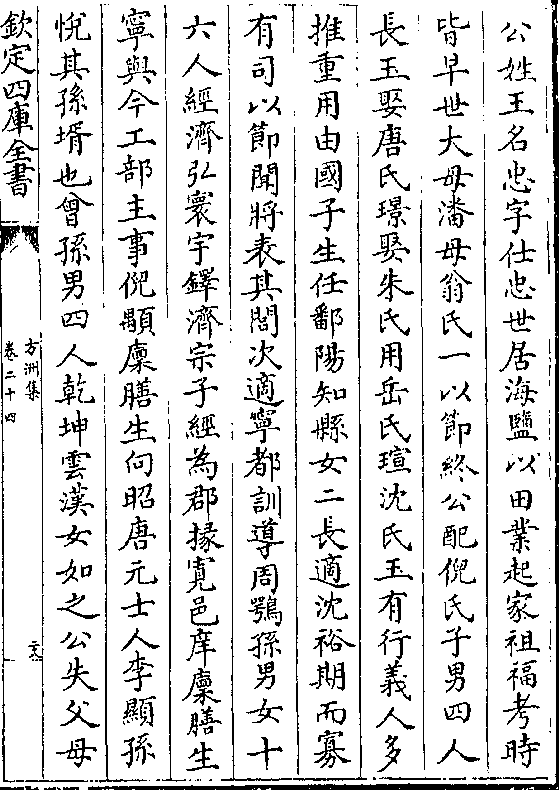 公姓王名忠字仕忠世居海鹽以田業起家祖福考時
皆早世大母潘母翁氏一以節終公配倪氏子男四人
長玉娶唐氏璟娶朱氏用岳氏瑄沈氏玉有行義人多
推重用由國子生任鄱陽知縣女二長適沈裕期而寡
有司以節聞將表其閭次適寧都訓導周鶚孫男女十
六人經濟弘寰宇鐸濟宗子經為郡掾寛邑庠廩膳生
寧與今工部主事倪顒廩膳生何昭唐元士人李顯孫
恱其孫壻也曾孫男四人乾坤雲漢女如之公失父母
欽定四庫全書
方洲集
卷二十四